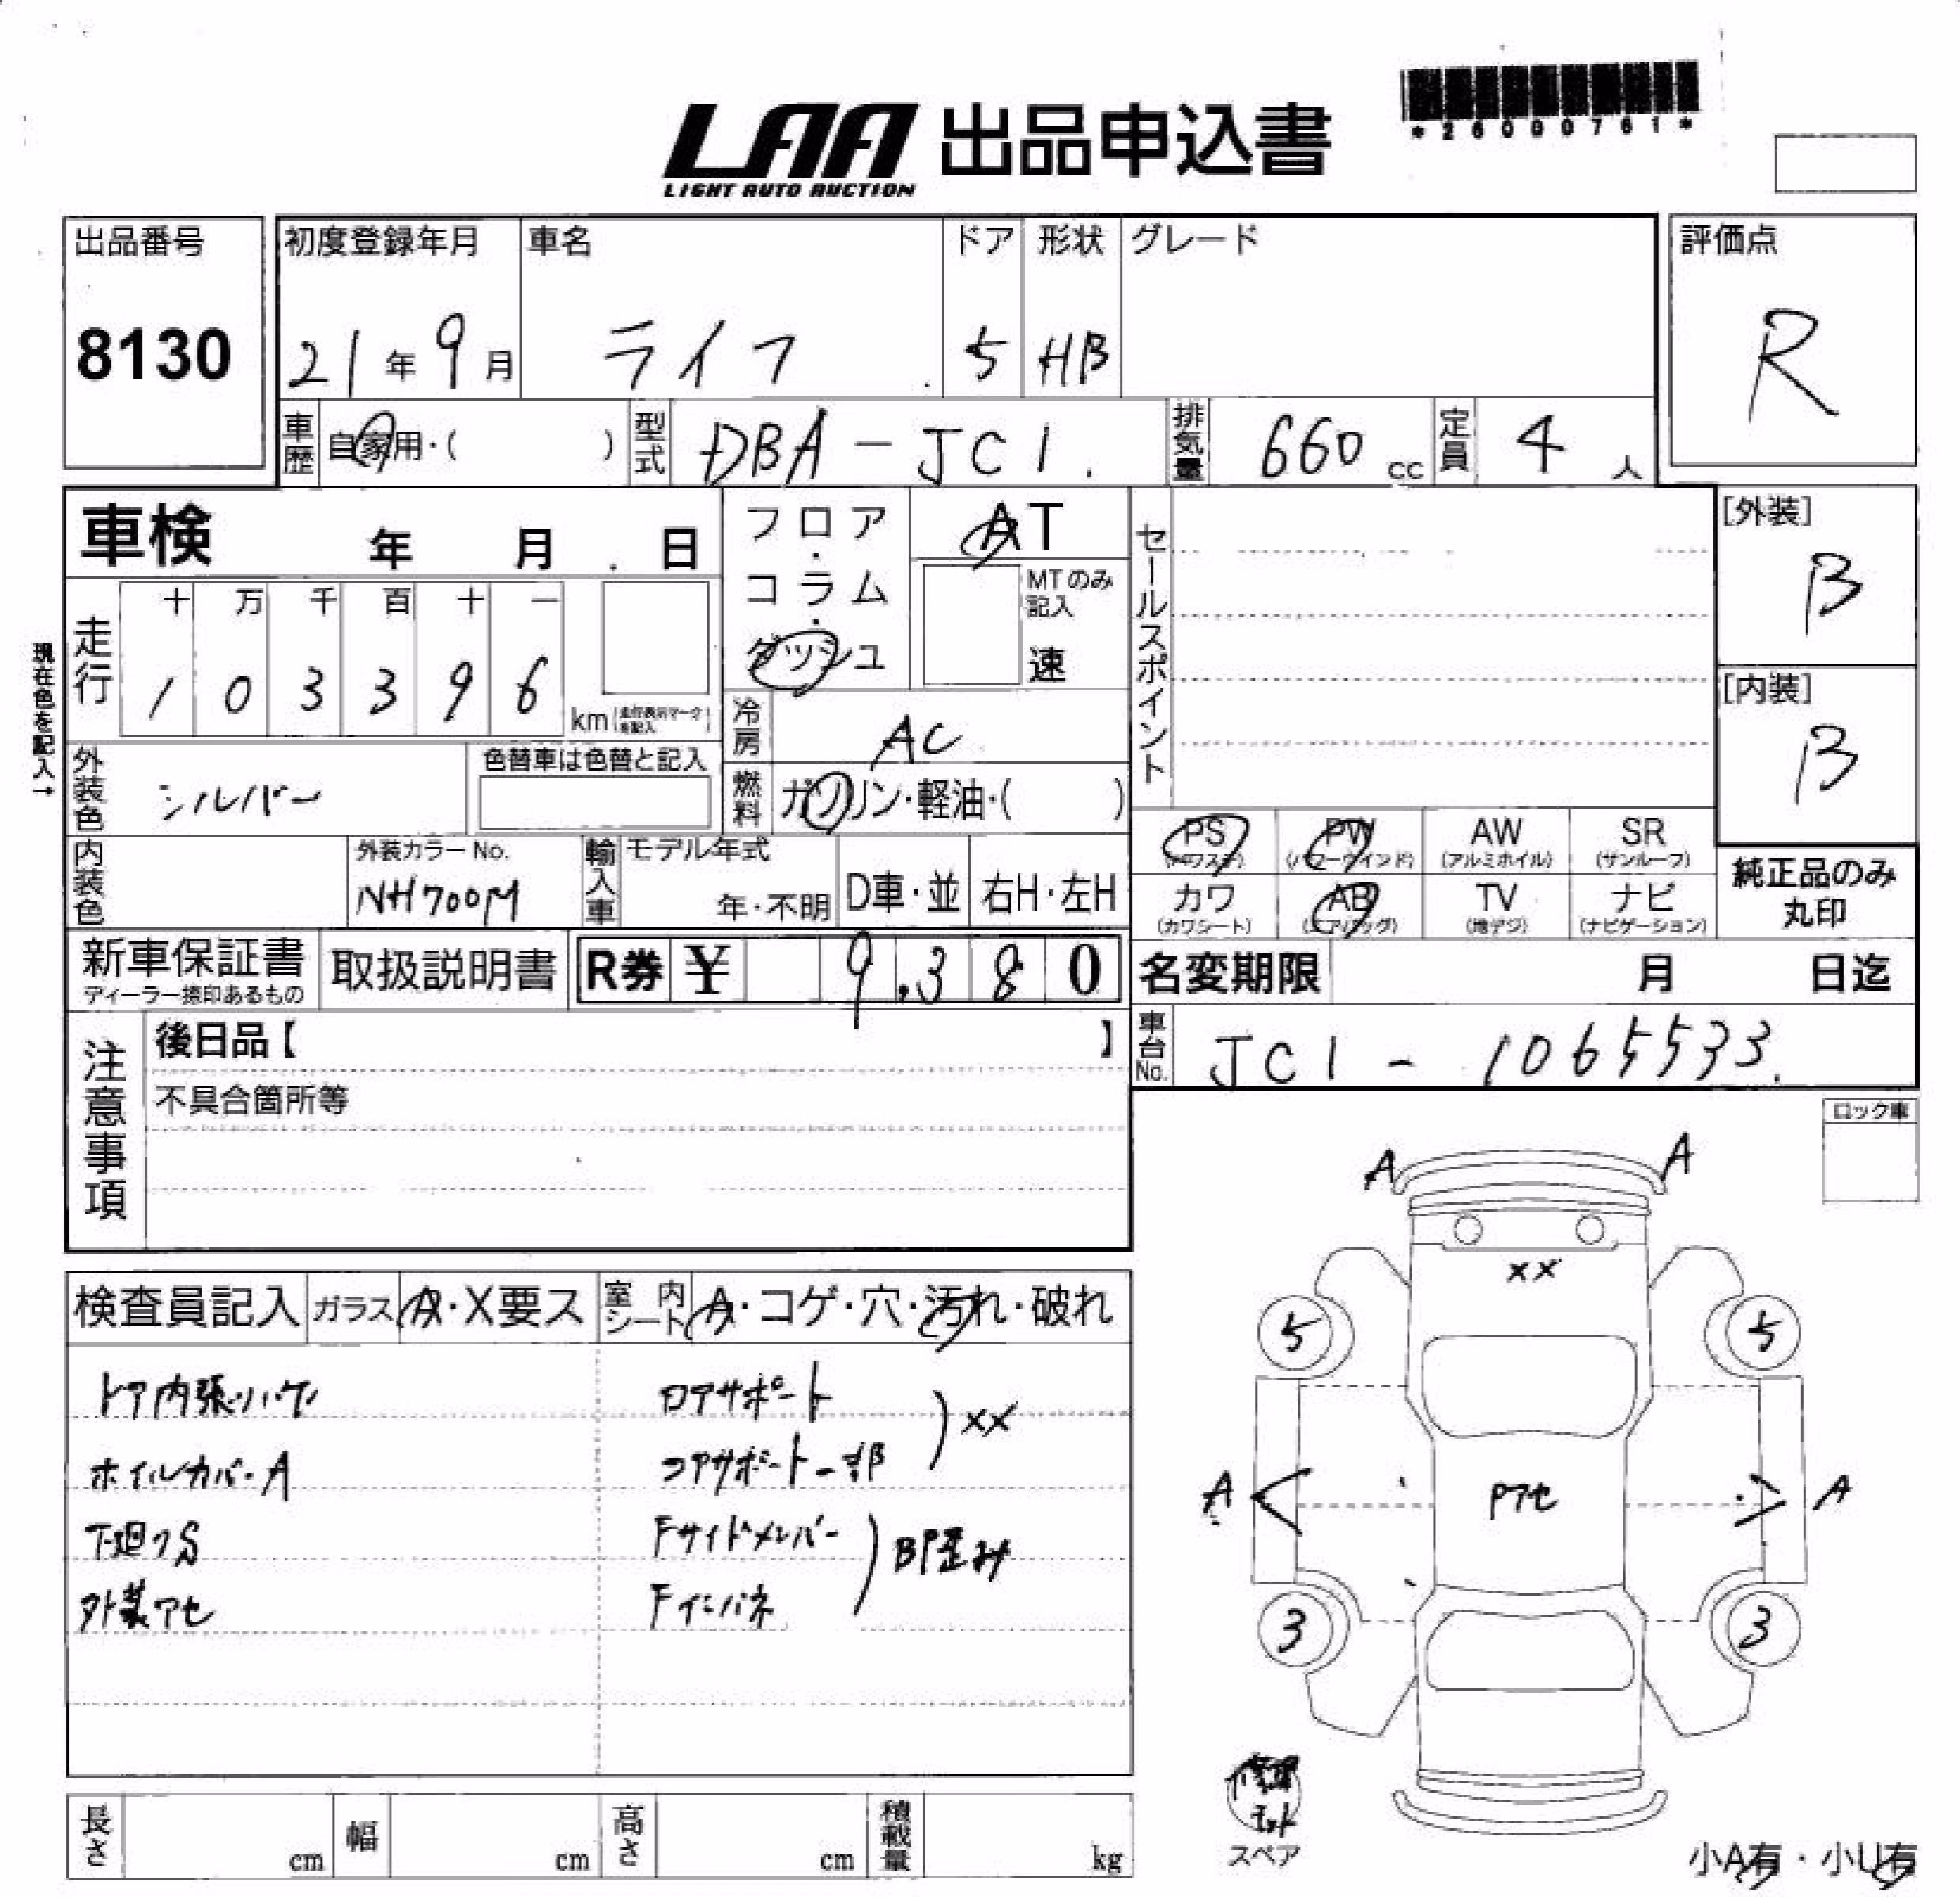 *26000761*
LAA 出品申込書
LIGHT AUTO AUCTION
出品番号
8130
初度登録年月
21年9月
車名
ライフ
ドア
5
形状
HB
グレード
評価点
R
車歴
自家用・( )
型式
DBA-JC1.
排気量
660 cc
定員
4 人
車検 年 月 日
フロア・コラム・ダッシュ
AT
MTのみ記入
速
セールスポイント
[外装]
B
[内装]
B
現在色を記入→
走行
十 万 千 百 十 一
1 0 3 3 9 6 km
(走行表示マークを記入)
冷房
AC
燃料
ガソリン・軽油・( )
外装色
シルバー
色替車は色替と記入
内装色
外装カラーNo.
NH700M
輸入車
モデル年式
年・不明
D車・並
右H・左H
PS (パワステ)
PW (パワーウインド)
AW (アルミホイル)
SR (サンルーフ)
カワ (カワシート)
AB (エアバッグ)
TV (地デジ)
ナビ (ナビゲーション)
純正品のみ丸印
新車保証書
ディーラー捺印あるもの
取扱説明書
R券 ¥ 9,380
名変期限 月 日迄
車台No.
JC1-1065533.
注意事項
後日品【 】
不具合箇所等
ロック車
検査員記入
ガラス A・X要ス
室内シート A・コゲ・穴・汚れ・破れ
ドア内張りハゲ
ホイルカバーA
下廻りS
外装アセ
コアサポート
コアサポート一部
XX
Fサイドメンバー
Fインパネ
BP歪み
A A
XX
5 5
A A
Pアセ
3 3
修理キット
スペア
小A有・小U有
長さ cm
幅 cm
高さ cm
積載量 kg